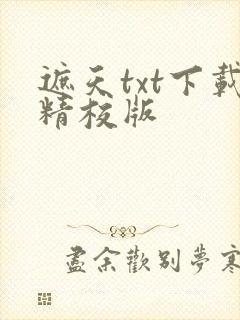 遮天txt下载
精校版
盡余歡别夢寒